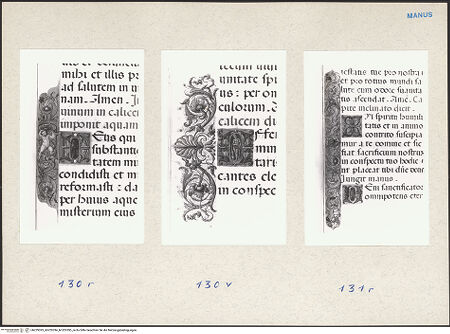 MANUS
mihi et illis pr
ad salutem in u
nam. Amen. I
uinum in calicem
imponit aquam
Eus qui
substantie
tatem mu
condidisti et mi
reformasti: da
per huius aque
misterium eius
unitate spi
us: per on
culorum. I
ffe
mus
tari
cantes cle
in conspec
testatis tue pro nostra e
per pro totius mundi sa
lute cum odore suauita
tis ascendat. Amē. Ca
pite inclinato dicit.
N spiritu humili
tatis et in animo
contrito suscipia
mur a te domine et sic
fiat sacrificium nostrum
in conspectu tuo hodie
ut placeat tibi dñe deus
Iungit manus.
Eni sanctificator
omnipotens eter
130 r
130 v
131 r